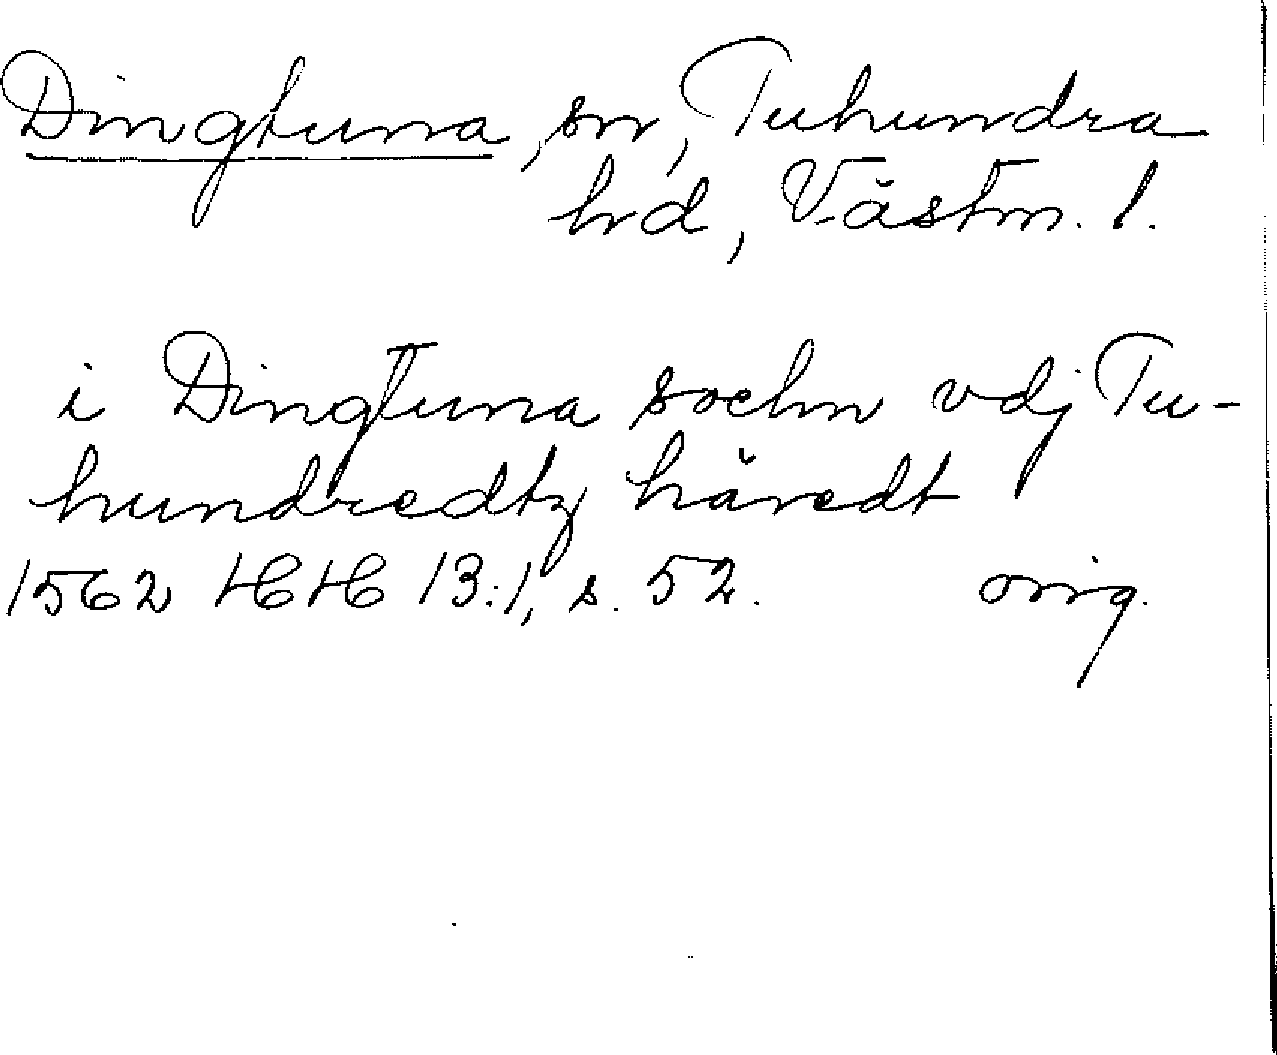 Dingtuna, sn, Tuhundra
hd, Västm. l.
i Dingtuna sochn vdj Tu-
hundredtz häredt
1562 HH 13:1, s. 52. orig.